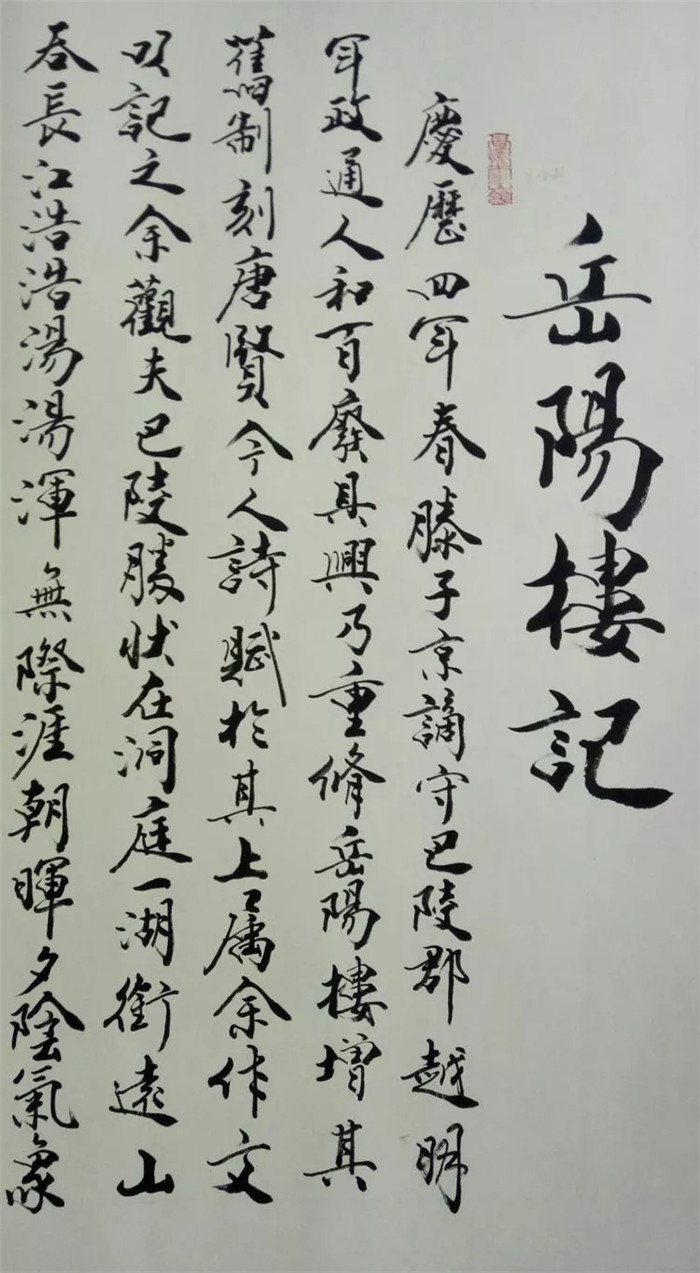 岳陽樓記
慶曆四年春滕子京謫守巴陵郡越明
年政通人和百廢具興乃重脩岳陽樓增其
舊制刻唐賢今人詩賦於其上属余作文
以記之余觀夫巴陵勝状在洞庭一湖銜遠山
吞長江浩浩湯湯渾無際涯朝暉夕陰氣象